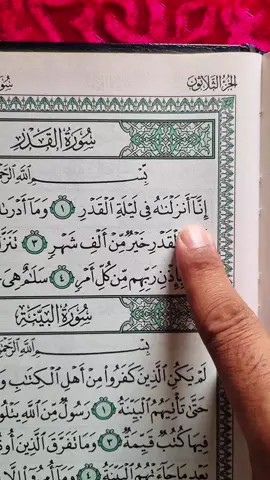 الجزء الثلاثون
سورة القدر
إِنَّا أَنزَلْنَٰهُ فِى لَيْلَةِ ٱلْقَدْرِ ١ وَمَآ
ٱلْقَدْرِ خَيْرٌ مِّنْ أَلْفِ شَهْرٍ ٣
بِإِذْنِ رَبِّهِم مِّن كُلِّ أَمْرٍ ٤ سَلَٰمٌ هِىَ
سورة البينة
لَمْ يَكُنِ ٱلَّذِينَ كَفَرُوا۟ مِنْ أَهْلِ ٱلْكِتَٰبِ
حَتَّىٰ تَأْتِيَهُمُ ٱلْبَيِّنَةُ ١ رَسُولٌ مِّنَ ٱللَّهِ
فِيهَا كُتُبٌ قَيِّمَةٌ ٣ وَمَا تَفَرَّقَ ٱلَّذِينَ
بَعْدِ مَا جَآءَتْهُمُ ٱلْبَيِّنَةُ ٤ وَمَآ